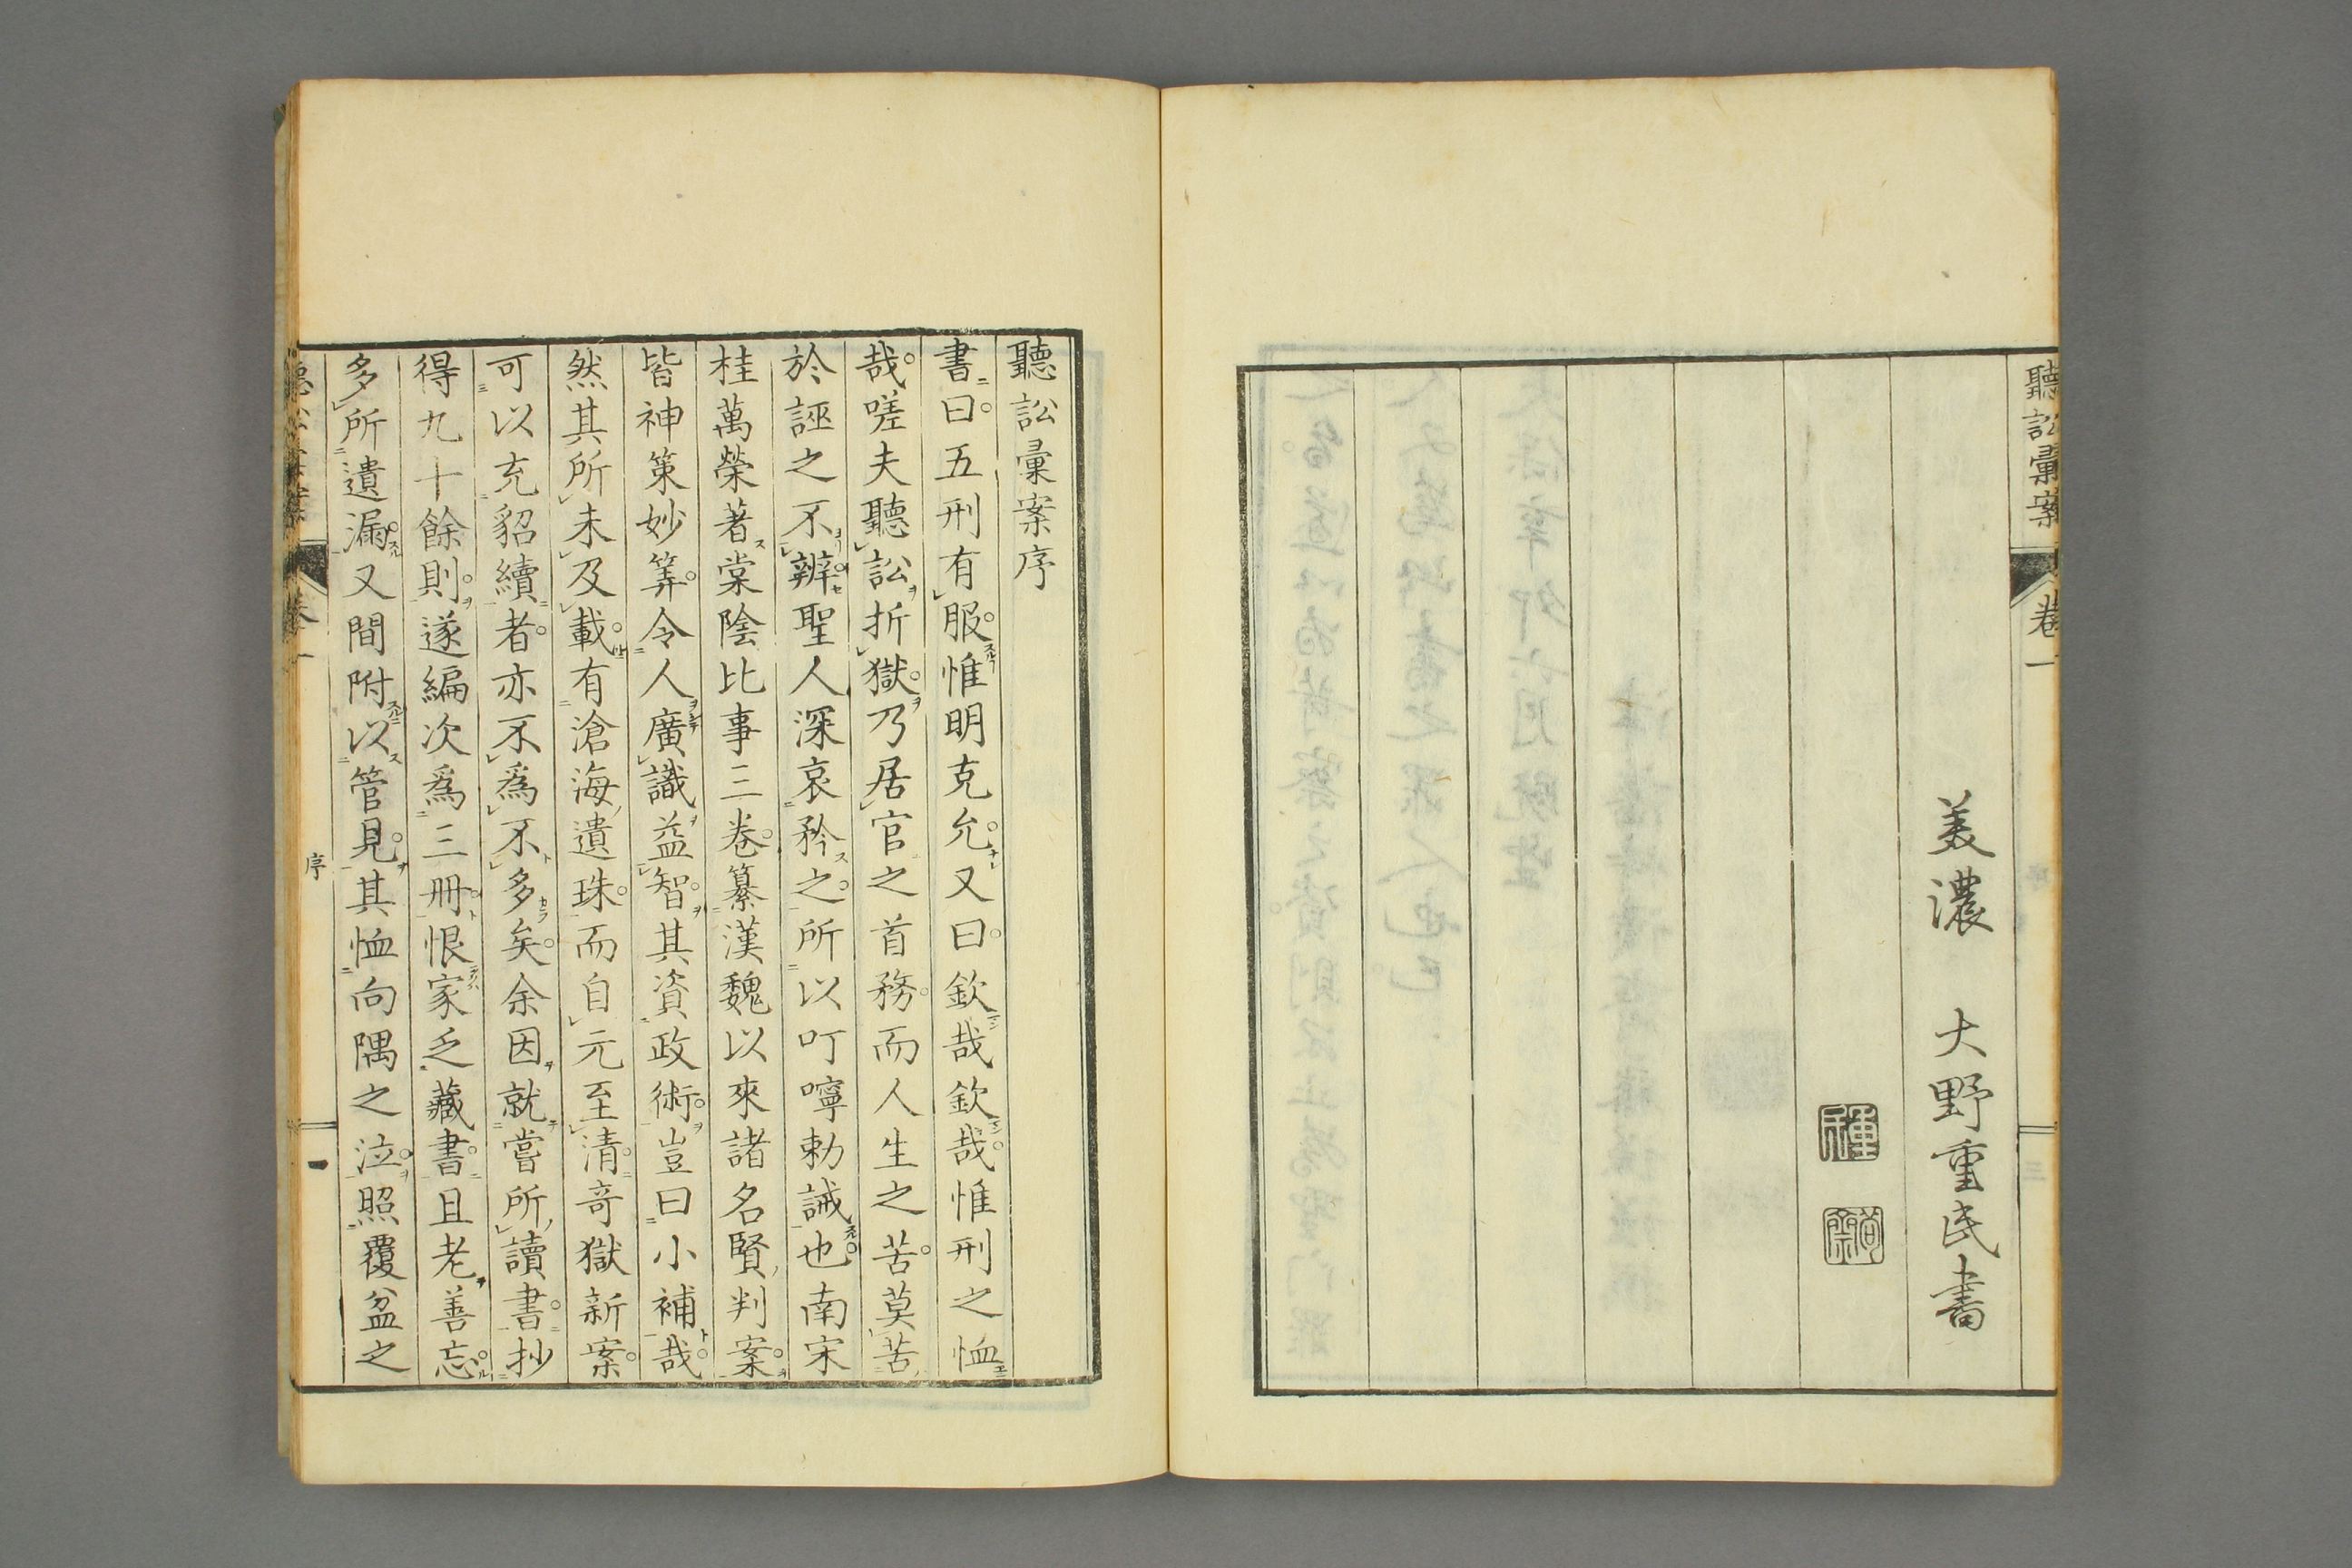 聽訟彙案
卷一
美濃 大野重民書
種
尚齋
聽訟彙案序
書曰五刑有服惟明克允又曰欽哉欽哉惟刑之恤
哉嗟夫聽訟折獄乃居官之首務而人生之苦莫苦
於誣之不辨聖人深哀矜之所以叮嚀勅誡也南宋
桂萬榮著棠陰比事三卷纂漢魏以來諸名賢判案
皆神策妙筭令人廣識益智其資政術豈曰小補哉
然其所未及載有滄海遺珠而自元至清奇獄新案
可以充貂續者亦不為不多矣余因就嘗所讀書抄
得九十餘則遂編次為三冊恨家乏藏書且老善忘
多所遺漏又間附以管見其恤向隅之泣照覆盆之
卷一
序
一